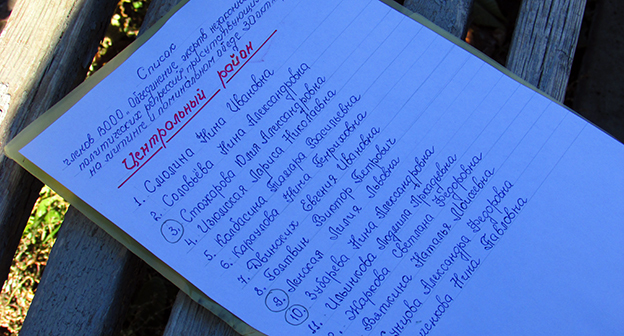 Список
членов ВООО Объединение жертв незаконных
политических репрессий, присутствующих
на митинге и поминальном обеде 30 окт
Центральный район
1. Смолина Нина Ивановна
2. Соловьёва Нина Александровна
3. Стожарова Юлия Александровна
4. Лариса Николаевна
5. Колбасина Тамара Васильевна
6. Караулова Нина Генриховна
7. Двинских Евгения Ивановна
8. Болтвин Виктор Петрович
9. Ленская Лилия Львовна
10. Зубарева Нина Александровна
11. Людмила
Жаркова Светлана Фёдоровна
Вяткина Наталья
Александра Фёдоровна
Нина Павловна